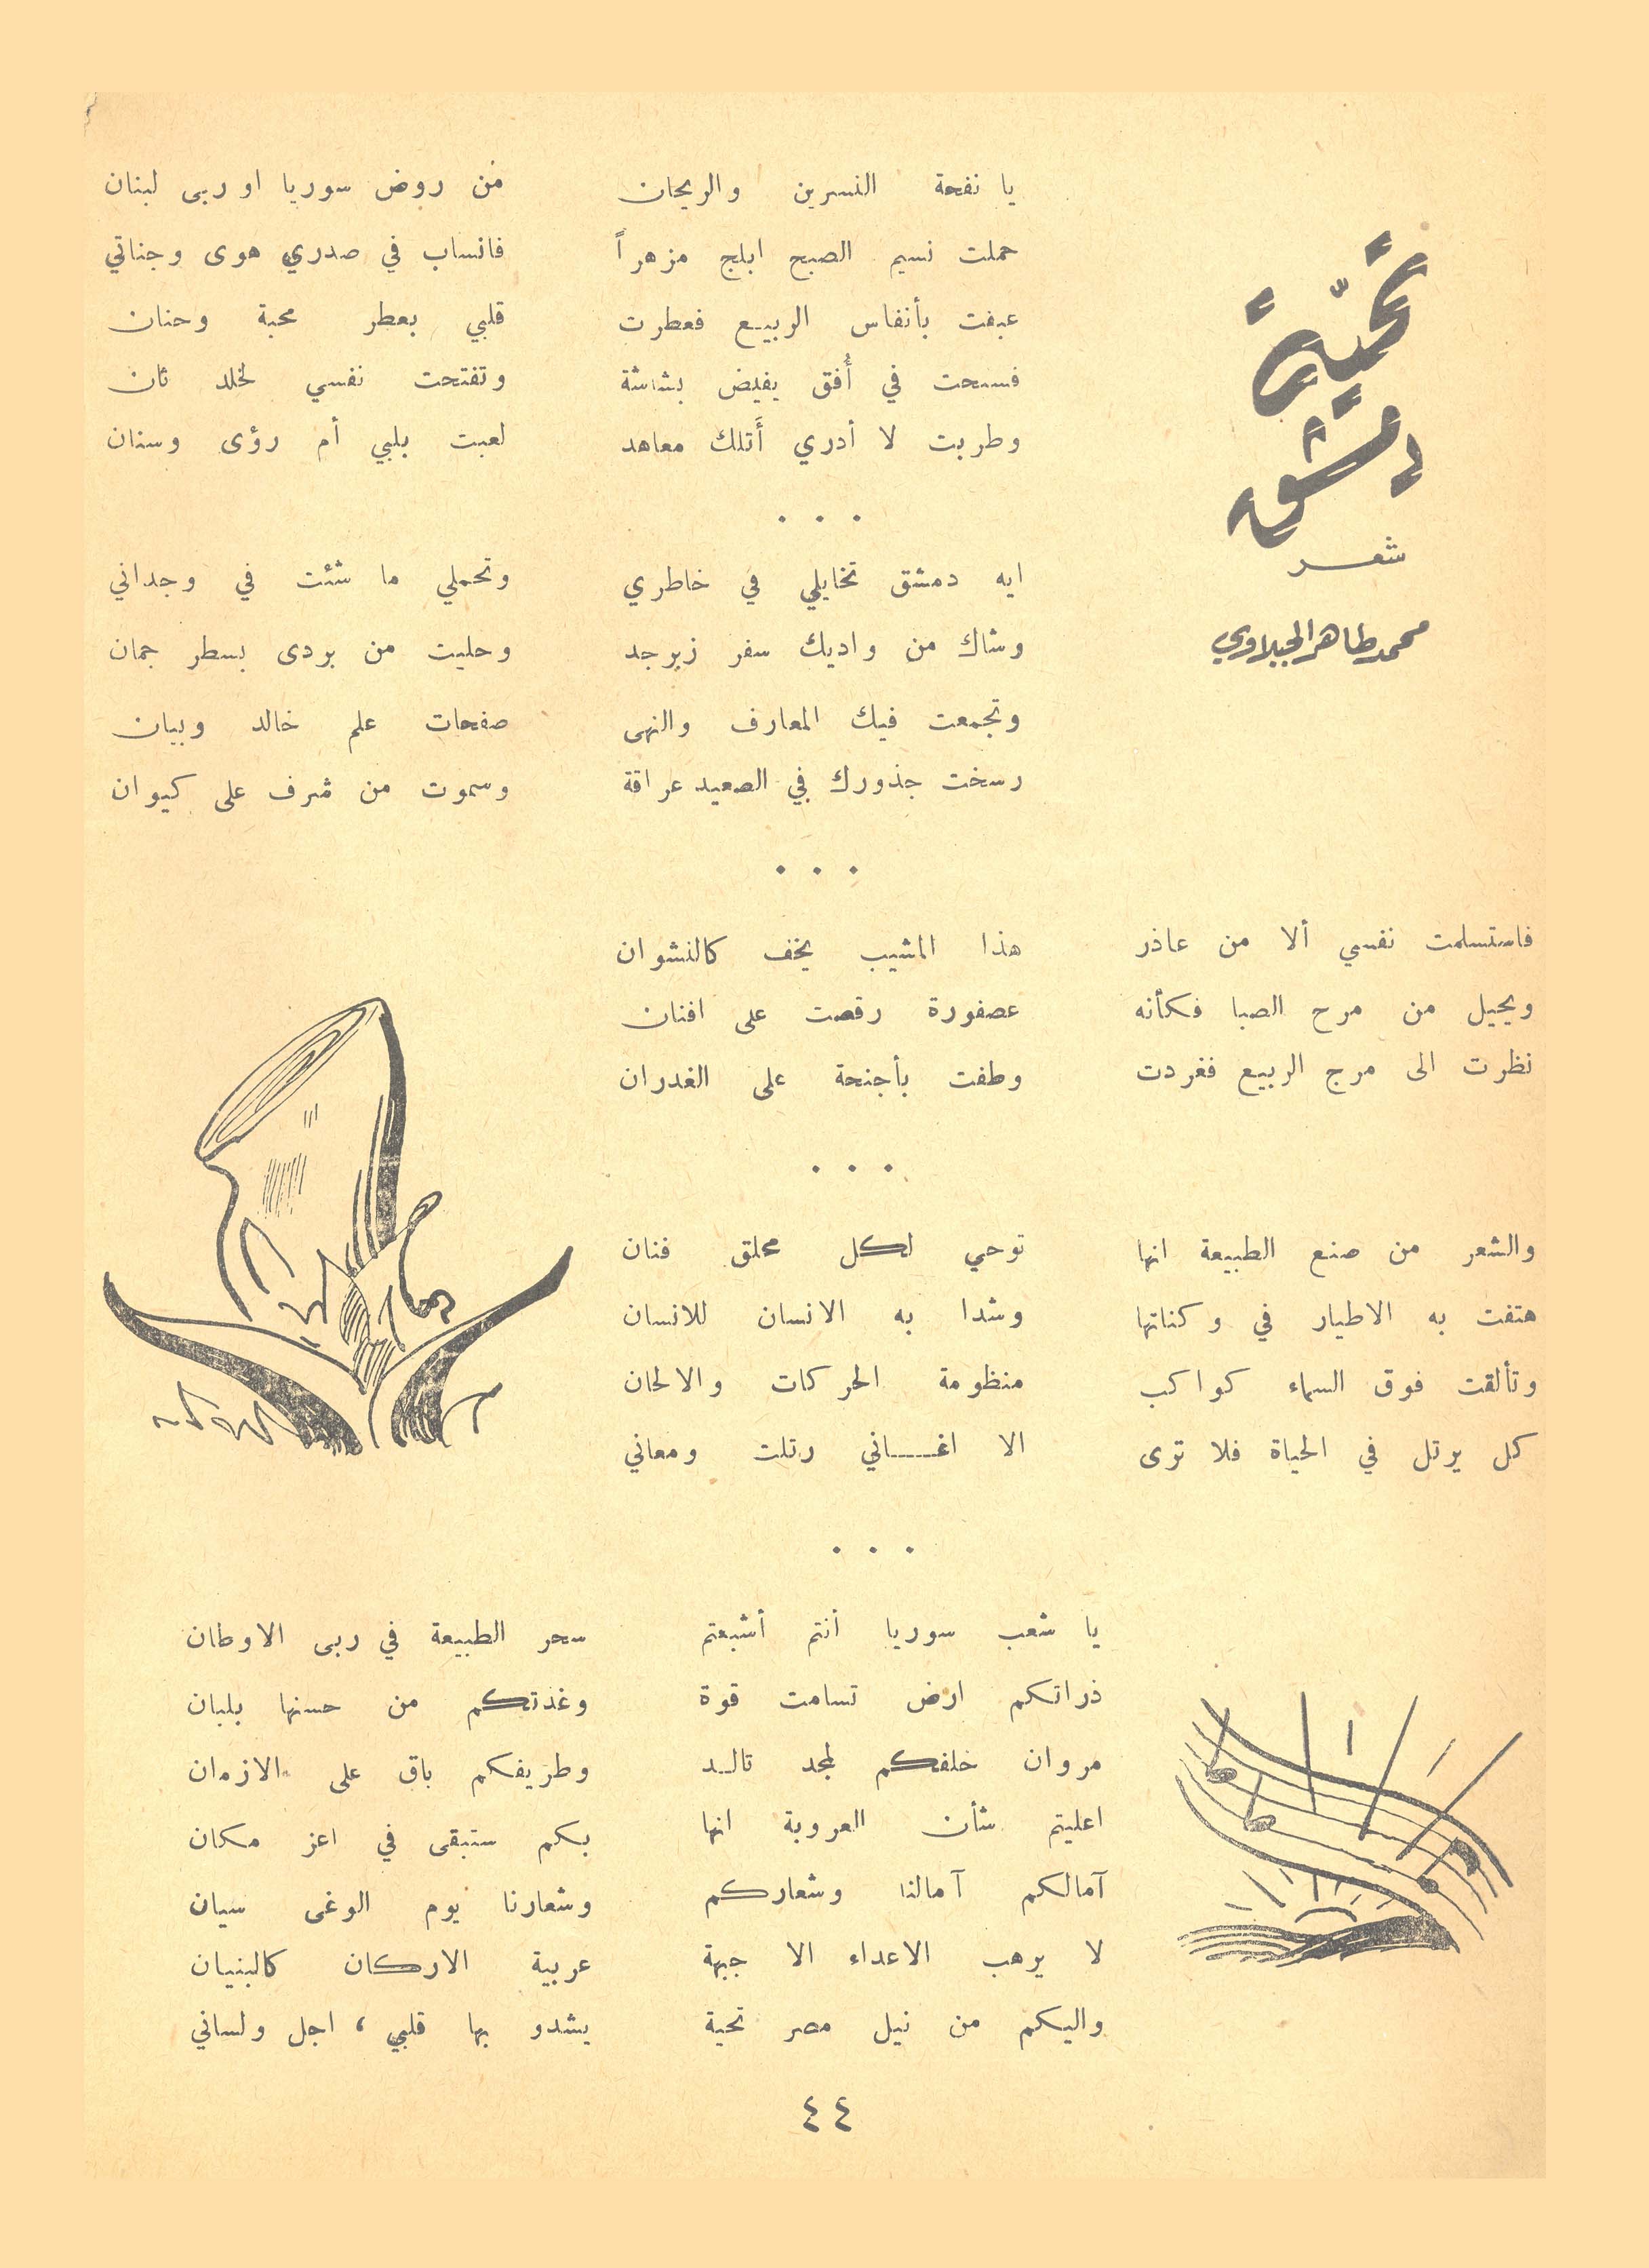 تحيّة
دمشق
شعر
محمد طاهر الجبلاوي
يا نفحة النسرين والريحان من روض سوريا او ربى لبنان
حملت نسيم الصبح ابلج مزهراً فانساب في صدري هوى وجناتي
عبقت بأنفاس الربيع فعطرت قلبي بعطر محبة وحنان
فسبحت في أُفق يفيض بشاشة وتفتحت نفسي لخلد ثان
وطربت لا أدري أَتلك معاهد لعبت بلبي أم رؤى وسنان
. . .
ايه دمشق تخايلي في خاطري وتحملي ما شئت في وجداني
وشاك من واديك سفر زبرجد وحليت من بردى بسطر جمان
وتجمعت فيك المعارف والنهى صفحات علم خالد وبيان
رسخت جذورك في الصعيد عراقة وسموت من شرف على كيوان
. . .
فاستسلمت نفسي ألا من عاذر هذا المشيب يخف كالنشوان
ويحيل من مرح الصبا فكأنه عصفورة رقصت على افنان
نظرت الى مرج الربيع فغردت وطفت بأجنحة على الغدران
. . .
والشعر من صنع الطبيعة انها توحي لكل محلق فنان
هتفت به الاطيار في وكناتها وشدا به الانسان للانسان
وتألقت فوق السماء كواكب منظومة الحركات والالحان
كل يرتل في الحياة فلا ترى الا اغاني رتلت ومعاني
. . .
يا شعب سوريا أنتم أشبعتم سحر الطبيعة في ربى الاوطان
ذراتكم ارض تسامت قوة وغذتكم من حسنها بلبان
مروان خلفكم لمجد تالد وطريفكم باق على الازمان
اعليتم شأن العروبة انها بكم ستبقى في اعز مكان
آمالكم آمالنا وشعاركم وشعارنا يوم الوغى سيان
لا يرهب الاعداء الا جبهة عربية الاركان كالبنيان
واليكم من نيل مصر تحية يشدو بها قلبي ، اجل ولساني
٤٤